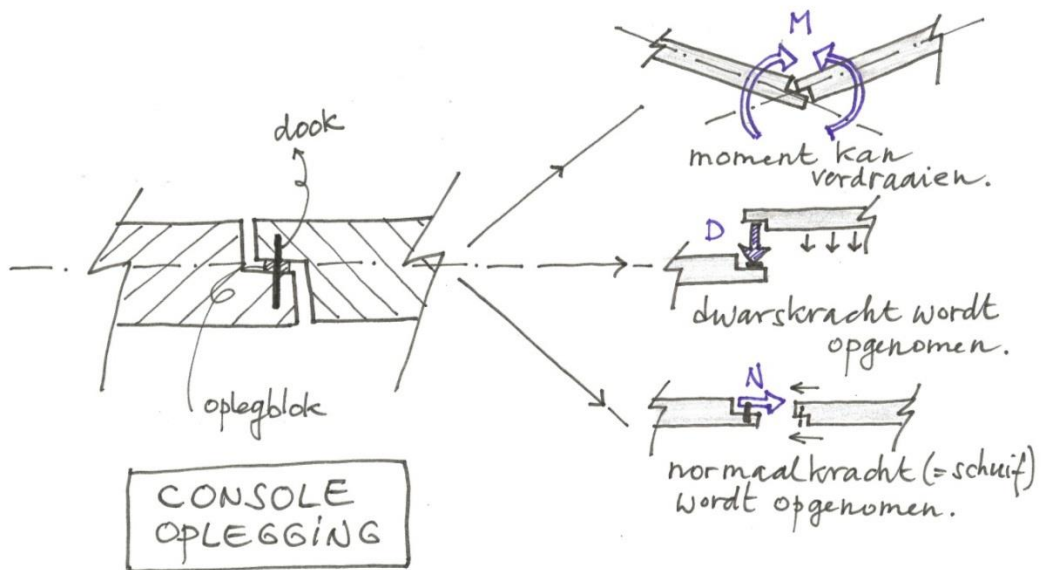 dook
oplegblok
CONSOLE
OPLEGGING
M
moment kan
verdraaien.
D
dwarskracht wordt
opgenomen.
N
normaalkracht (=schuif)
wordt opgenomen.